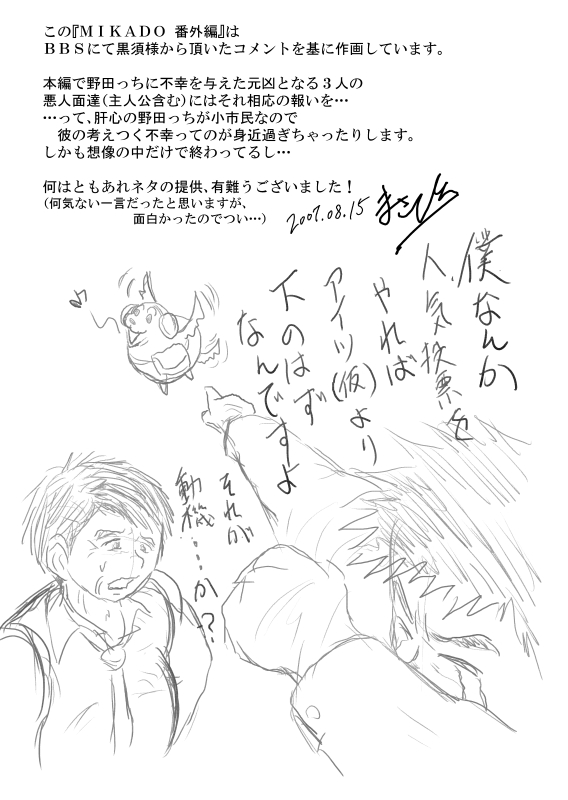 この『ＭＩＫＡＤＯ 番外編』は
ＢＢＳにて黒須様から頂いたコメントを基に作画しています。
本編で野田っちに不幸を与えた元凶となる３人の
悪人面達（主人公含む）にはそれ相応の報いを…
…って、肝心の野田っちが小市民なので
彼の考えつく不幸ってのが身近過ぎちゃったりします。
しかも想像の中だけで終わってるし…
何はともあれネタの提供、有難うございました！
（何気ない一言だったと思いますが、
面白かったのでつい…）
2007.08.15
僕なんか
人気投票を
やれば
アイツ(仮)より
下のはず
なんですよ
それが
動機……か？